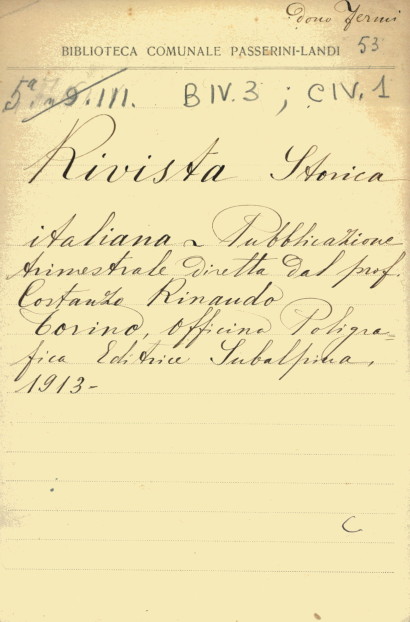 dono Fermi
BIBLIOTECA COMUNALE PASSERINI-LANDI 53
5ª 9. III. B IV. 3 ; C IV. 1
Rivista Storica
italiana ~ Pubblicazione
trimestrale diretta dal prof.
Costanzo Rinaudo
Torino, Officina Poligra=
fica Editrice Subalpina,
1913-
C